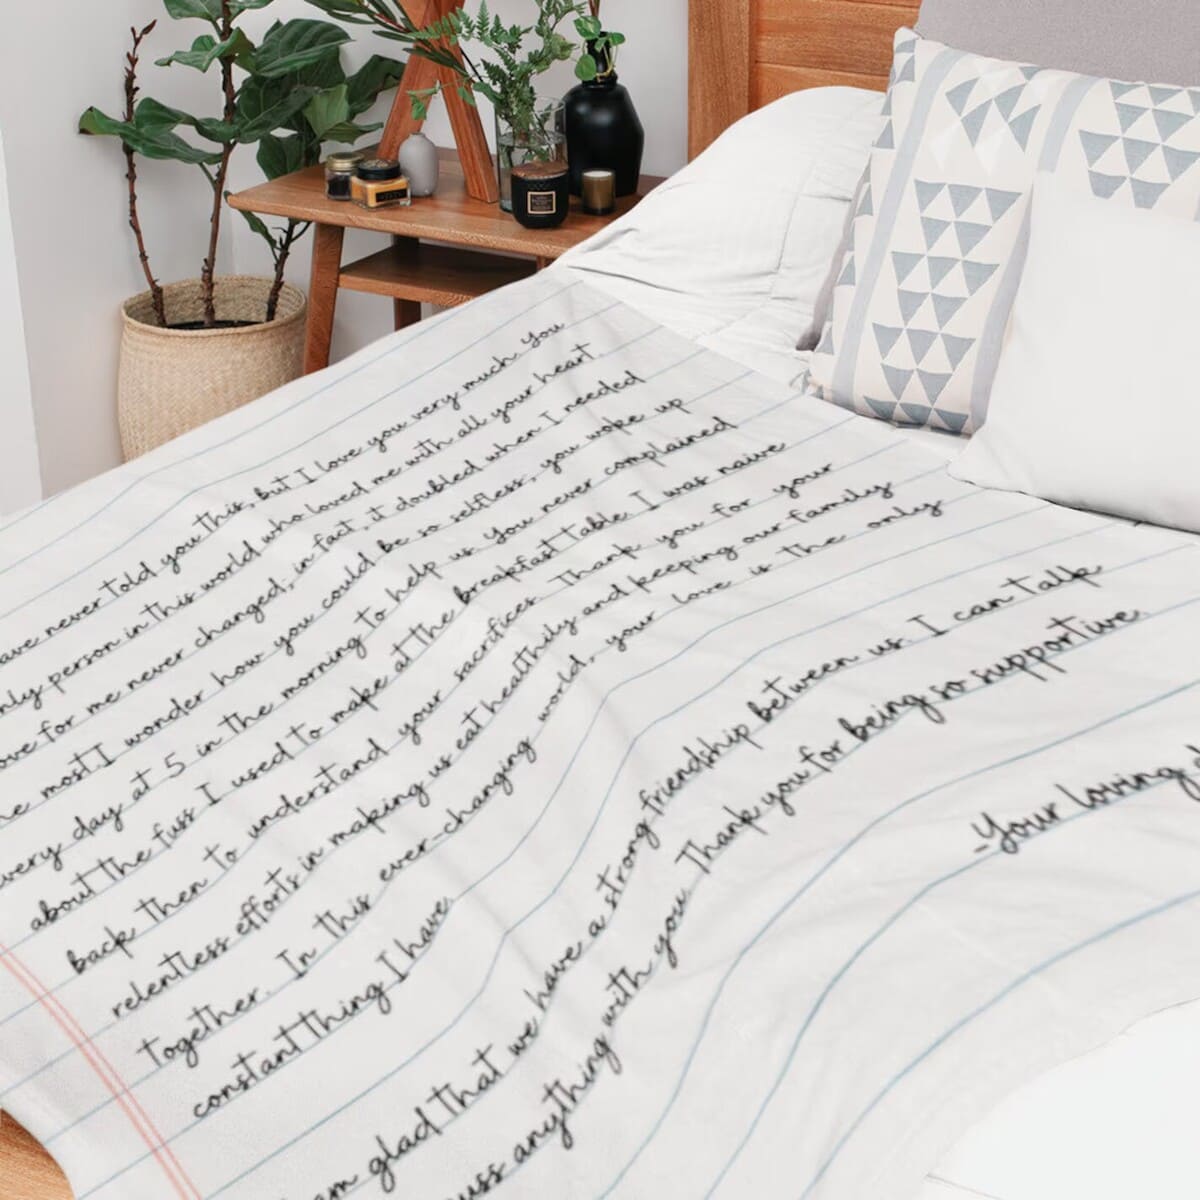 have never told you this, but I love you very much. You
only person in this world who loved me with all your heart.
love for me never changed; in fact, it doubled when I needed
the most I wonder how you could be so selfless, you woke up
every day at 5 in the morning to help us. You never complained
about the fuss I used to make at the breakfast table. I was naive
back then to understand your sacrifices. Thank you for your
relentless efforts in making us eat healthily and keeping our family
together. In this ever-changing world, your love is the only
constant thing I have.
am glad that we have a strong friendship between us. I can talk
anything with you. Thank you for being so supportive.
-Your loving